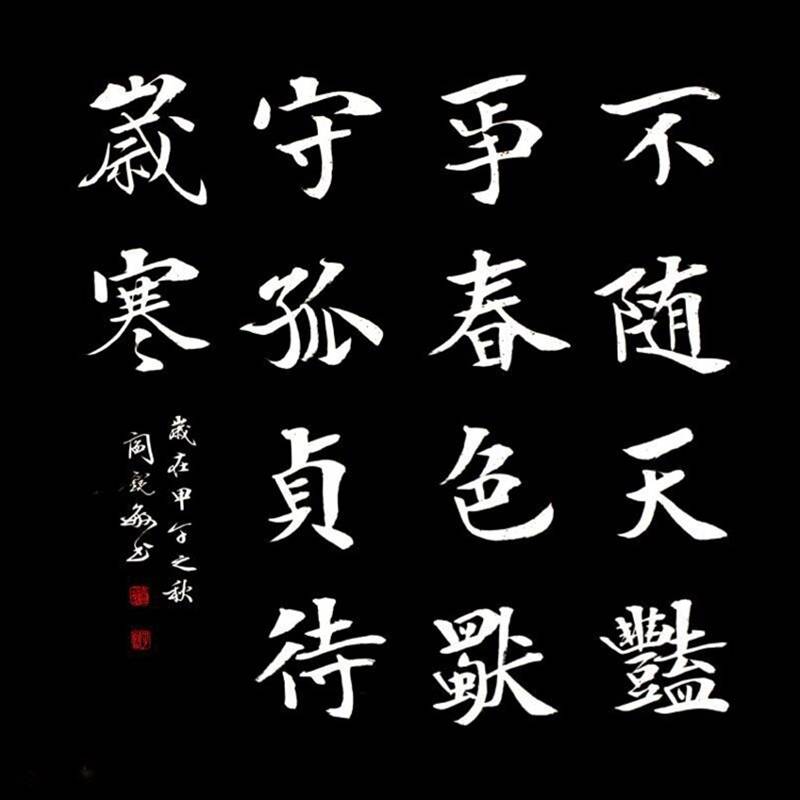 不随天豔
爭春色獨
守孤貞待
歲寒
歲在甲午之秋